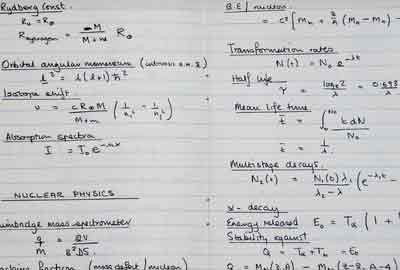 Rydberg Const.
R∞ = R∞
R hydrogen = M / M+m R∞
Orbital angular momentum (intrinsic
l² = l(l+1)ħ²
Isotope shift.
ν = cR∞M / M+m (1/n₁² - 1/n₂²)
Absorption spectra
I = I₀ e^-nσx
NUCLEAR PHYSICS
bridge mass spectrometer
q/M = 2V / B²D
fraction (mass defect / nucleon)
B.E / nucleon
= c² [Mn + Z/A (MH - Mn) -
Transformation rates
N(t) = N₀ e^-λt
Half life
τ = loge2 / λ = 0.693
Mean life time
t̄ = ∫₀^N₀ t dN / N₀
t̄ = 1/λ
Multistage decays.
N₂(t) = N₁(0) λ₁ / λ₂ - λ₁ (e^-λ₁t -
α - decay
Energy released E₀ = Tα (1 +
Stability against
Q = Tα + Tb = E₀
Q = M (Z,A) - M (Z-2, A-4)